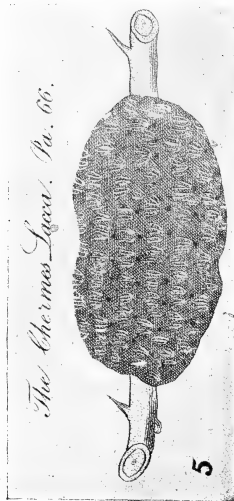 The Chermes Lacca. Pa. 66.
5